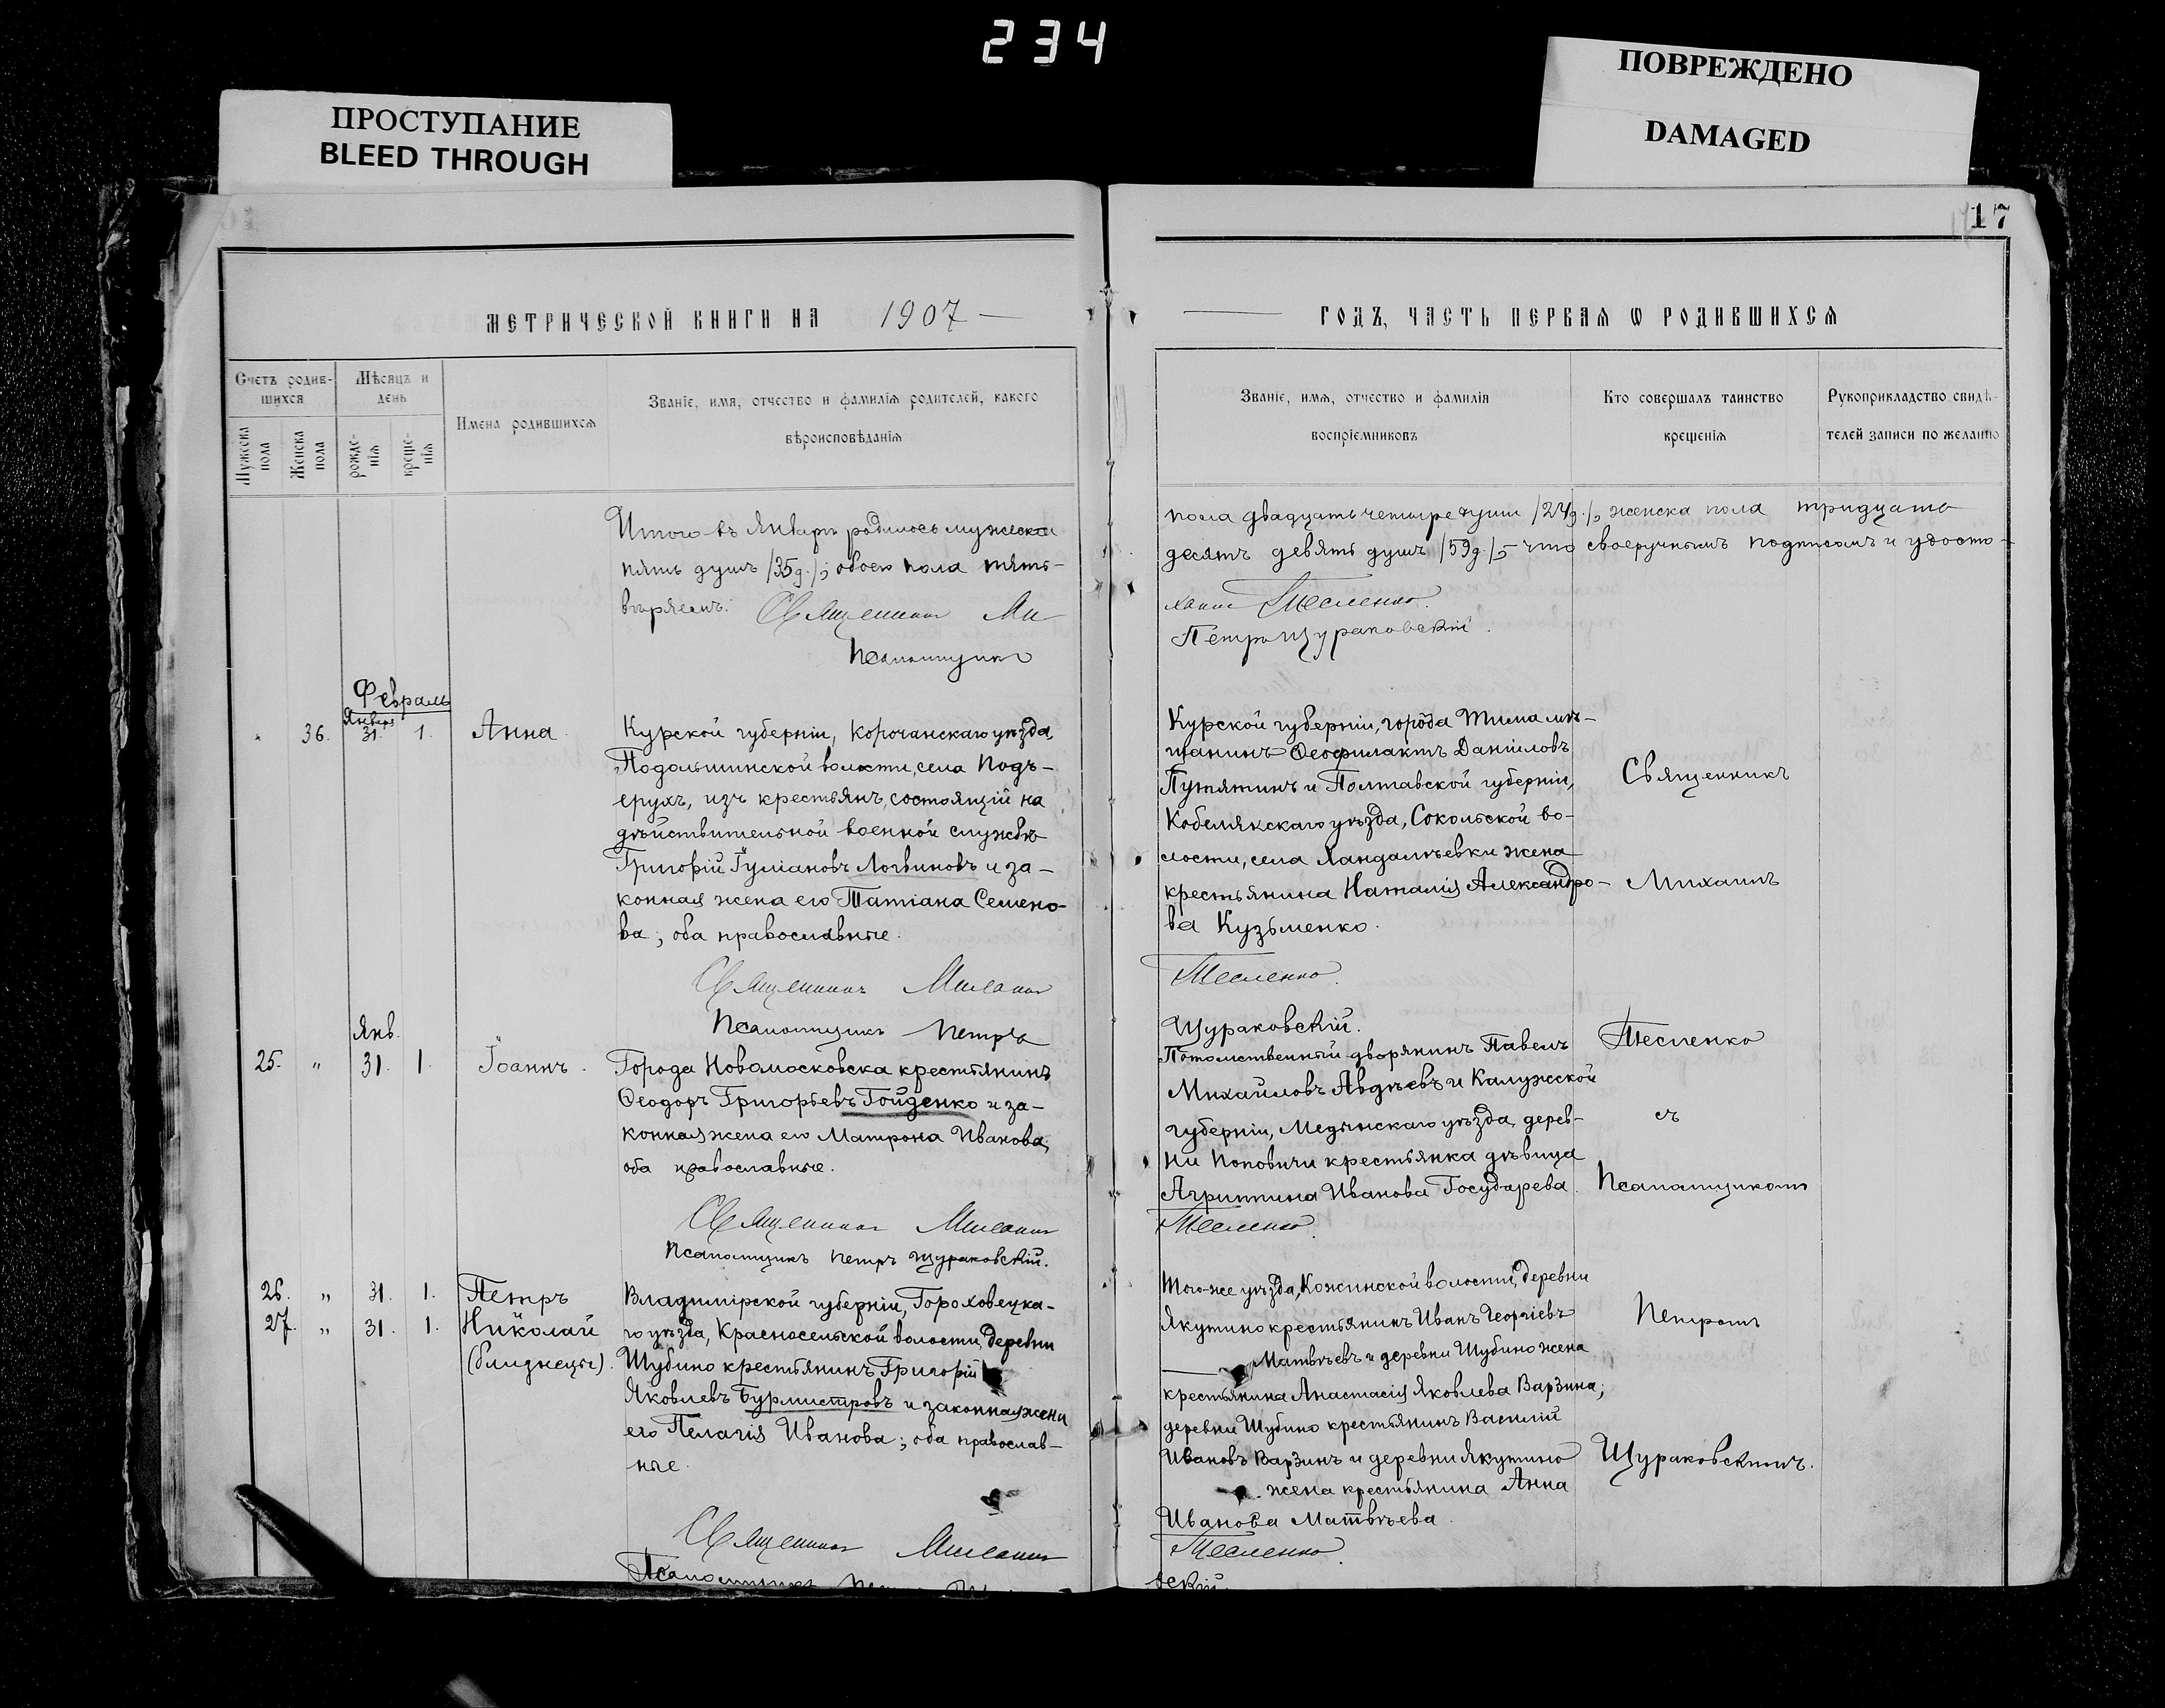 234
ПРОСТУПАНИЕ
BLEED THROUGH
ПОВРЕЖДЕНО
DAMAGED
17
МЕТРИЧЕСКОЙ КНИГИ НА 1907 —
Счетъ родив-
шихся
Мѣсяцъ и
день
Имена родившихся
Званіе, имя, отчество и фамилія родителей, какого
вѣроисповѣданія
Мужеска
пола
Женска
пола
рожде-
нія
креще-
нія
Итого въ Январѣ родилось мужеска
пять душъ /35 д./; обоего пола пять-
вѣряемъ. Священникъ Ми-
Псаломщикъ
Февраль
Января
36. 31. 1. Анна.
Курской губерніи, Корочанскаго уѣзда,
Подольшинской волости, села Подъ-
ерухъ, изъ крестьянъ, состоящій на
дѣйствительной военной службѣ
Григорій Гуліановъ Логвиновъ и за-
конная жена его Татіана Семено-
ва; оба православные.
Священникъ Михаилъ
Псаломщикъ Петръ
Янв.
25. " 31. 1. Іоаннъ.
Города Новомосковска крестьянинъ
Ѳеодоръ Григорьевъ Гойденко и за-
конная жена его Матрона Иванова;
оба православные.
Священникъ Михаилъ
Псаломщикъ Петръ Щураковскій.
26. " 31. 1. Петръ
27. " 31. 1. Николай
(близнецы).
Владимірской губерніи, Гороховецка-
го уѣзда, Красносельской волости, деревни
Шубино крестьянинъ Григорій
Яковлевъ Бурмистровъ и законная жена
его Пелагія Иванова; оба православ-
ные.
Священникъ Михаилъ
Псаломщикъ
ГОДЪ, ЧАСТЬ ПЕРВАЯ Ѡ РОДИВШИХСЯ
Званіе, имя, отчество и фамилія
воспріемниковъ
Кто совершалъ таинство
крещенія
Рукоприкладство свидѣ-
телей записи по желанію
пола двадцать четыре души /24 д./, женска пола тридцать
десятъ девять душъ /59 д./, что своеручнымъ подписомъ и удосто-
хаилъ Тесленко.
Петръ Щураковскій.
Курской губерніи, города Тима мѣ-
щанинъ Ѳеофилактъ Даніиловъ
Путятинъ и Полтавской губерніи,
Кобелякскаго уѣзда, Сокольской во-
лости, села Хандалѣевки жена
крестьянина Наталія Александро-
ва Кузьменко.
Тесленко.
Щураковскій.
Потомственный дворянинъ Павелъ
Михайловъ Авдѣевъ и Калужской
губерніи, Медынскаго уѣзда, дерев-
ни Поповичи крестьянка дѣвица
Агриппина Иванова Государева.
Тесленко.
Того-же уѣзда, Кожинской волости, деревни
Якутино крестьянинъ Иванъ Георгіевъ
Матвѣевъ и деревни Шубино жена
крестьянина Анастасія Яковлева Варзина;
деревни Шубино крестьянинъ Василій
Ивановъ Варзинъ и деревни Якутино
жена крестьянина Анна
Иванова Матвѣева.
Тесленко.
вскій.
Священникъ
Михаилъ
Тесленко
съ
Псаломщикомъ
Петромъ
Щураковскимъ.